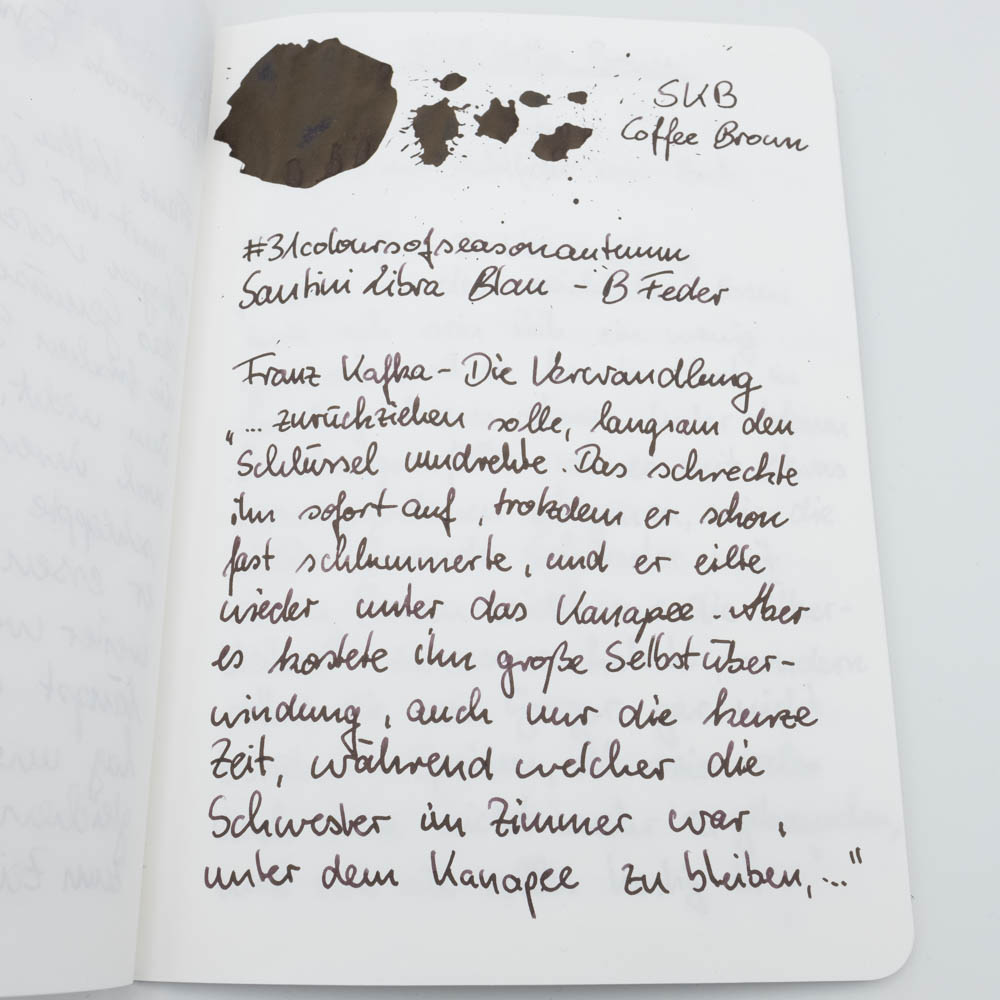 SKB
Coffee Brown
#31coloursofseasonautumn
Santini Libra Blau - B Feder
Franz Kafka - Die Verwandlung
„... zurückziehen solle, langsam den
Schlüssel umdrehte. Das schreckte
ihn sofort auf, trotzdem er schon
fast schlummerte, und er eilte
wieder unter das Kanapee. Aber
es kostete ihn große Selbstüber-
windung, auch nur die kurze
Zeit, während welcher die
Schwester im Zimmer war,
unter dem Kanapee zu bleiben,..."